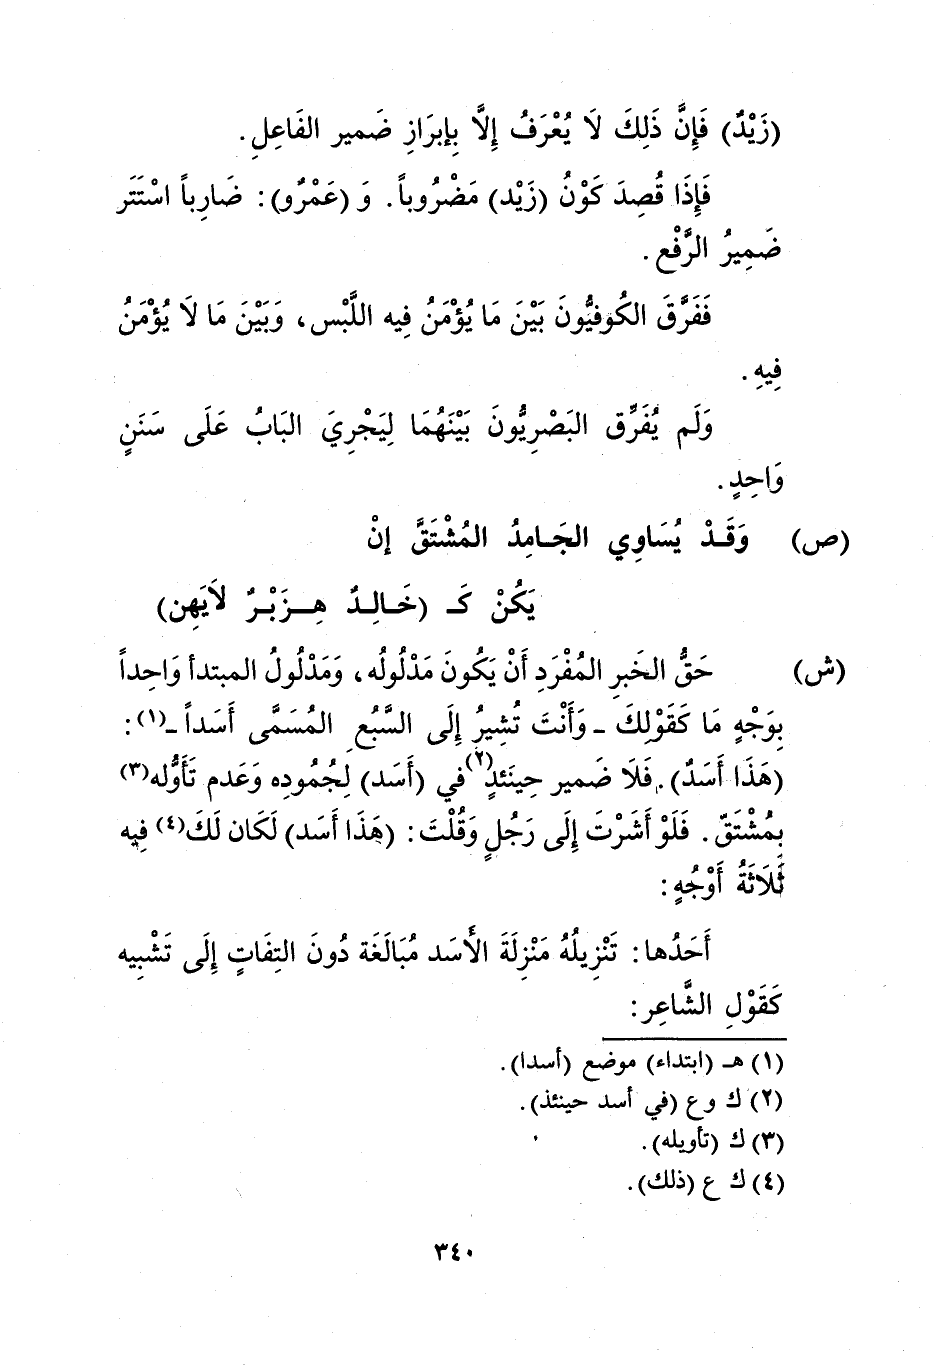 (زَيْدٌ) فَإِنَّ ذَلِكَ لَا يُعْرَفُ إِلَّا بِإبرَازِ ضَمير الفَاعِلِ.
فَإِذَا قُصِدَ كَوْنُ (زَيْد) مَضْرُوباً. وَ (عَمْرُو): ضَارِباً اسْتَتَر
ضَمِيرُ الرَّفْع.
فَفَرَّقَ الكُوفيُّونَ بَيْنَ مَا يُؤْمَنُ فِيه اللَّبْس، وَبَيْنَ مَا لَا يُؤْمَنُ
فِيهِ.
وَلَم يُفَرِّق البَصْرِيُّونَ بَيْنَهُمَا لِيَجْرِيَ البَابُ عَلَى سَنَنٍ
وَاحِدٍ.
(ص) وَقَدْ يُسَاوِي الجَـامِدُ المُشْتَقَّ إنْ
يَكُنْ كَـ (خَـالِـدٌ هِـزَبْـرٌ لاَيَهِن)
(ش) حَقُّ الخَبرِ المُفْرَدِ أَنْ يَكُونَ مَدْلُولُه، وَمَدْلُولُ المبتدأ وَاحِداً
بِوَجْهٍ مَا كَقَوْلِكَ ـ وَأَنْتَ تُشِيرُ إِلَى السَّبُعِ المُسَمَّى أَسَداً ـ(١):
(هَذَا أَسَدٌ). فَلَا ضَمير حِينَئذٍ(٢) في (أَسَد) لِجُمُودِه وَعَدم تَأَوُّلِه(٣)
بِمُشْتَقّ. فَلَوْ أَشَرْتَ إِلَى رَجُلٍ وَقُلْتَ: (هَذَا أَسَد) لَكَان لَكَ(٤) فِيهِ
ثَلَاثَةُ أَوْجُهٍ:
أَحَدُها: تَنْزِيلُهُ مَنْزِلَةَ الأَسَد مُبَالَغَة دُونَ التِفَاتٍ إِلَى تَشْبِيه
كَقَوْلِ الشَّاعِر:
(١) هـ (ابتداء) موضع (أسدا).
(٢) ك وع (في أسد حينئذ).
(٣) ك (تأويله).
(٤) ك ع (ذلك).
٣٤٠